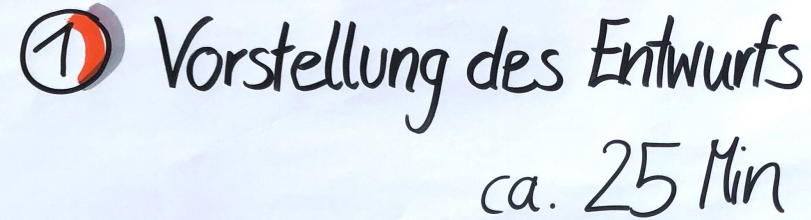 ① Vorstellung des Entwurfs
ca. 25 Min